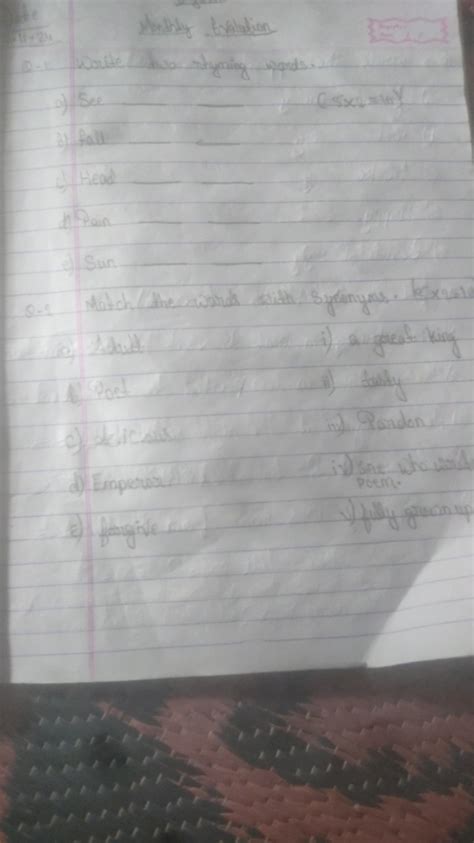 Monthly Evalation
Q-1 Write two rhyming words.
a) See (5x2=10)
b) Fall
c) Head
d) Pain
e) Sun
Q-2 Match the words with Synonyms.
a) Adult i) a great king
b) Poet ii) tasty
c) delicious iii) Pardon
d) Emperor iv) one who
poem.
E) forgive v) fully grown up